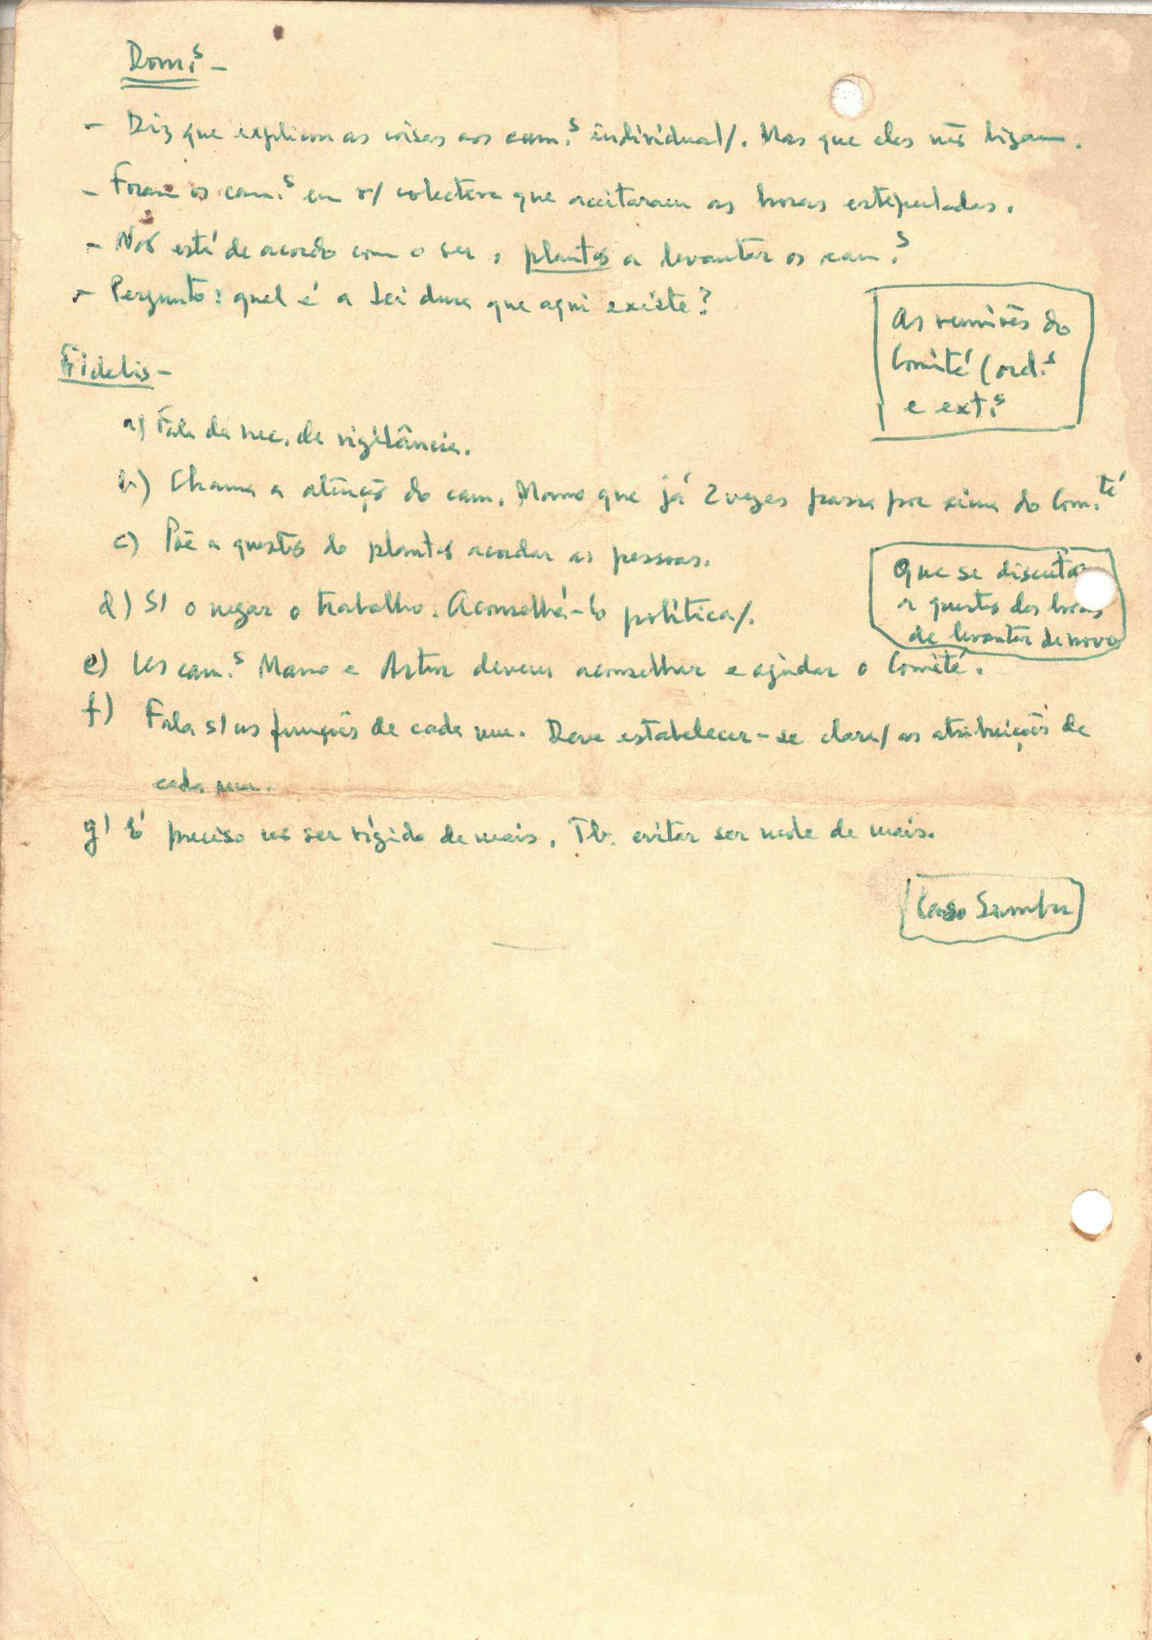 Dom.s -
- Diz que explicou as coisas aos cam.s individual/. Mas que eles não ligam.
- Foram os cam.s em r/ colectiva que aceitaram as horas estipuladas.
- Não está de acordo com o ser o plantão a levantar os cam.s
- Pergunto: qual é a Lei dura que aqui existe?
As reuniões do
Comité (ord.s
e ext.s
Fidelis -
a) Fala da nec. de vigilância.
b) Chama a atenção do cam. Mano que já 2 vezes passa por cima do Com.té
c) Põe a questão do plantão acordar as pessoas.
Que se discuta
a questão das horas
de levantar de novo
d) S/ o negar o trabalho. Aconselhá-lo política/.
e) Os cam.s Mano e Artur devem aconselhar e ajudar o Comité.
f) Fala s/ as funções de cada um. Deve estabelecer-se clara/ as atribuições de
cada um.
g) É preciso não ser rígido de mais. Tb. evitar ser mole de mais.
Caso Samba